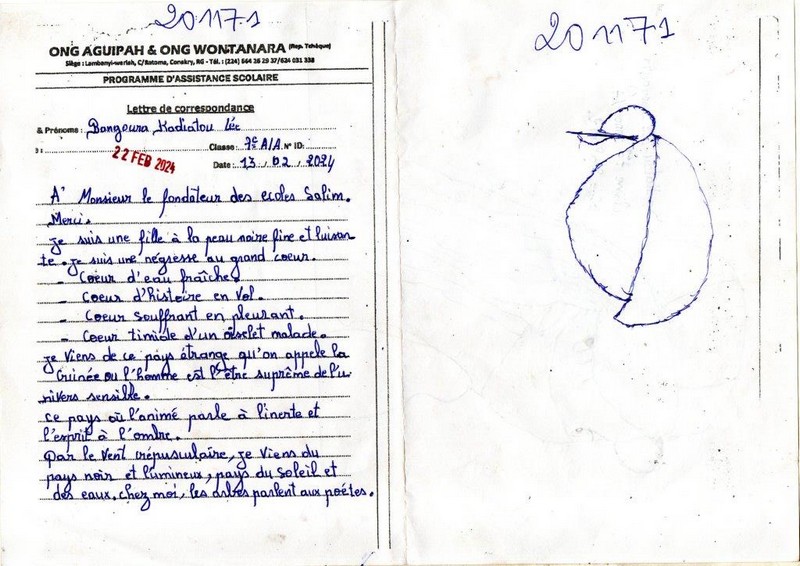 201171
ONG AGUIPAH & ONG WONTANARA (Rep. Tchèque)
Siège : Lambanyi-warlah, C/Ratoma, Conakry, RG - Tél. : (224) 664 26 29 37/624 031 338
PROGRAMME D'ASSISTANCE SCOLAIRE
Lettre de correspondance
& Prénoms : Bangoura Kadiatou
Classe : 7e A/A N° ID:
22 FEB 2024
Date : 13 , 02 , 2024
A' Monsieur le fondateur des ecoles Salim.
Merci.
je suis une fille à la peau noire fine et luisan
te. je suis une négresse au grand coeur.
- Coeur d'eau fraîche.
- Coeur d'histoire en vol.
- Coeur souffrant en pleurant.
- Coeur timide d'un oiselet malade.
je viens de ce pays étrange qu'on appele la
Guinée ou l'homme est l'être suprême de l'u-
nivers sensible.
Ce pays où l'animé parle à l'inerte et
l'esprit à l'ombre.
Par le vent crépusculaire, je viens du
pays noir et lumineux, pays du soleil et
des eaux. chez moi, les arbres parlent aux poétes.
201171